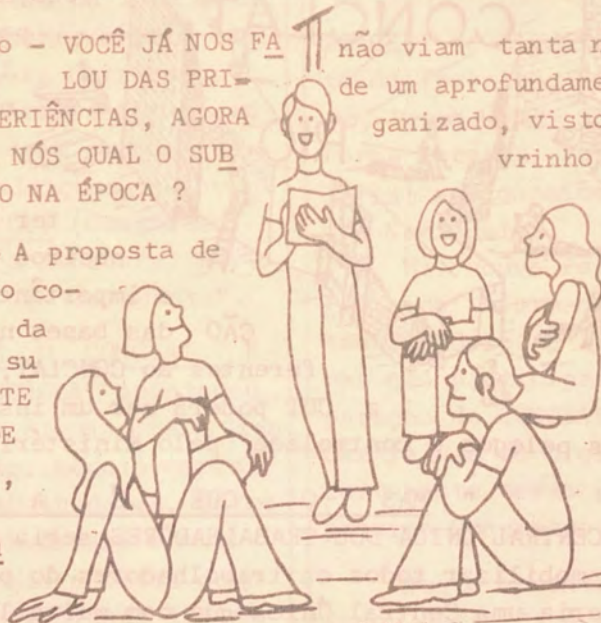 o - VOCÊ JÁ NOS FA
LOU DAS PRI-
ERIÊNCIAS, AGORA
NÓS QUAL O SUB
O NA ÉPOCA ?
A proposta de
o co-
da
su
TE
E
,
não viam tanta n
de um aprofundame
ganizado, visto
vrinho